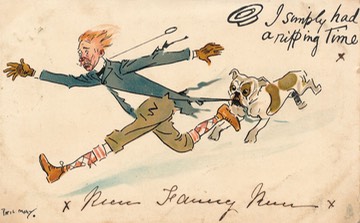 I simply had
a ripping Time
x
Phil May.
x Run Fanny Run x